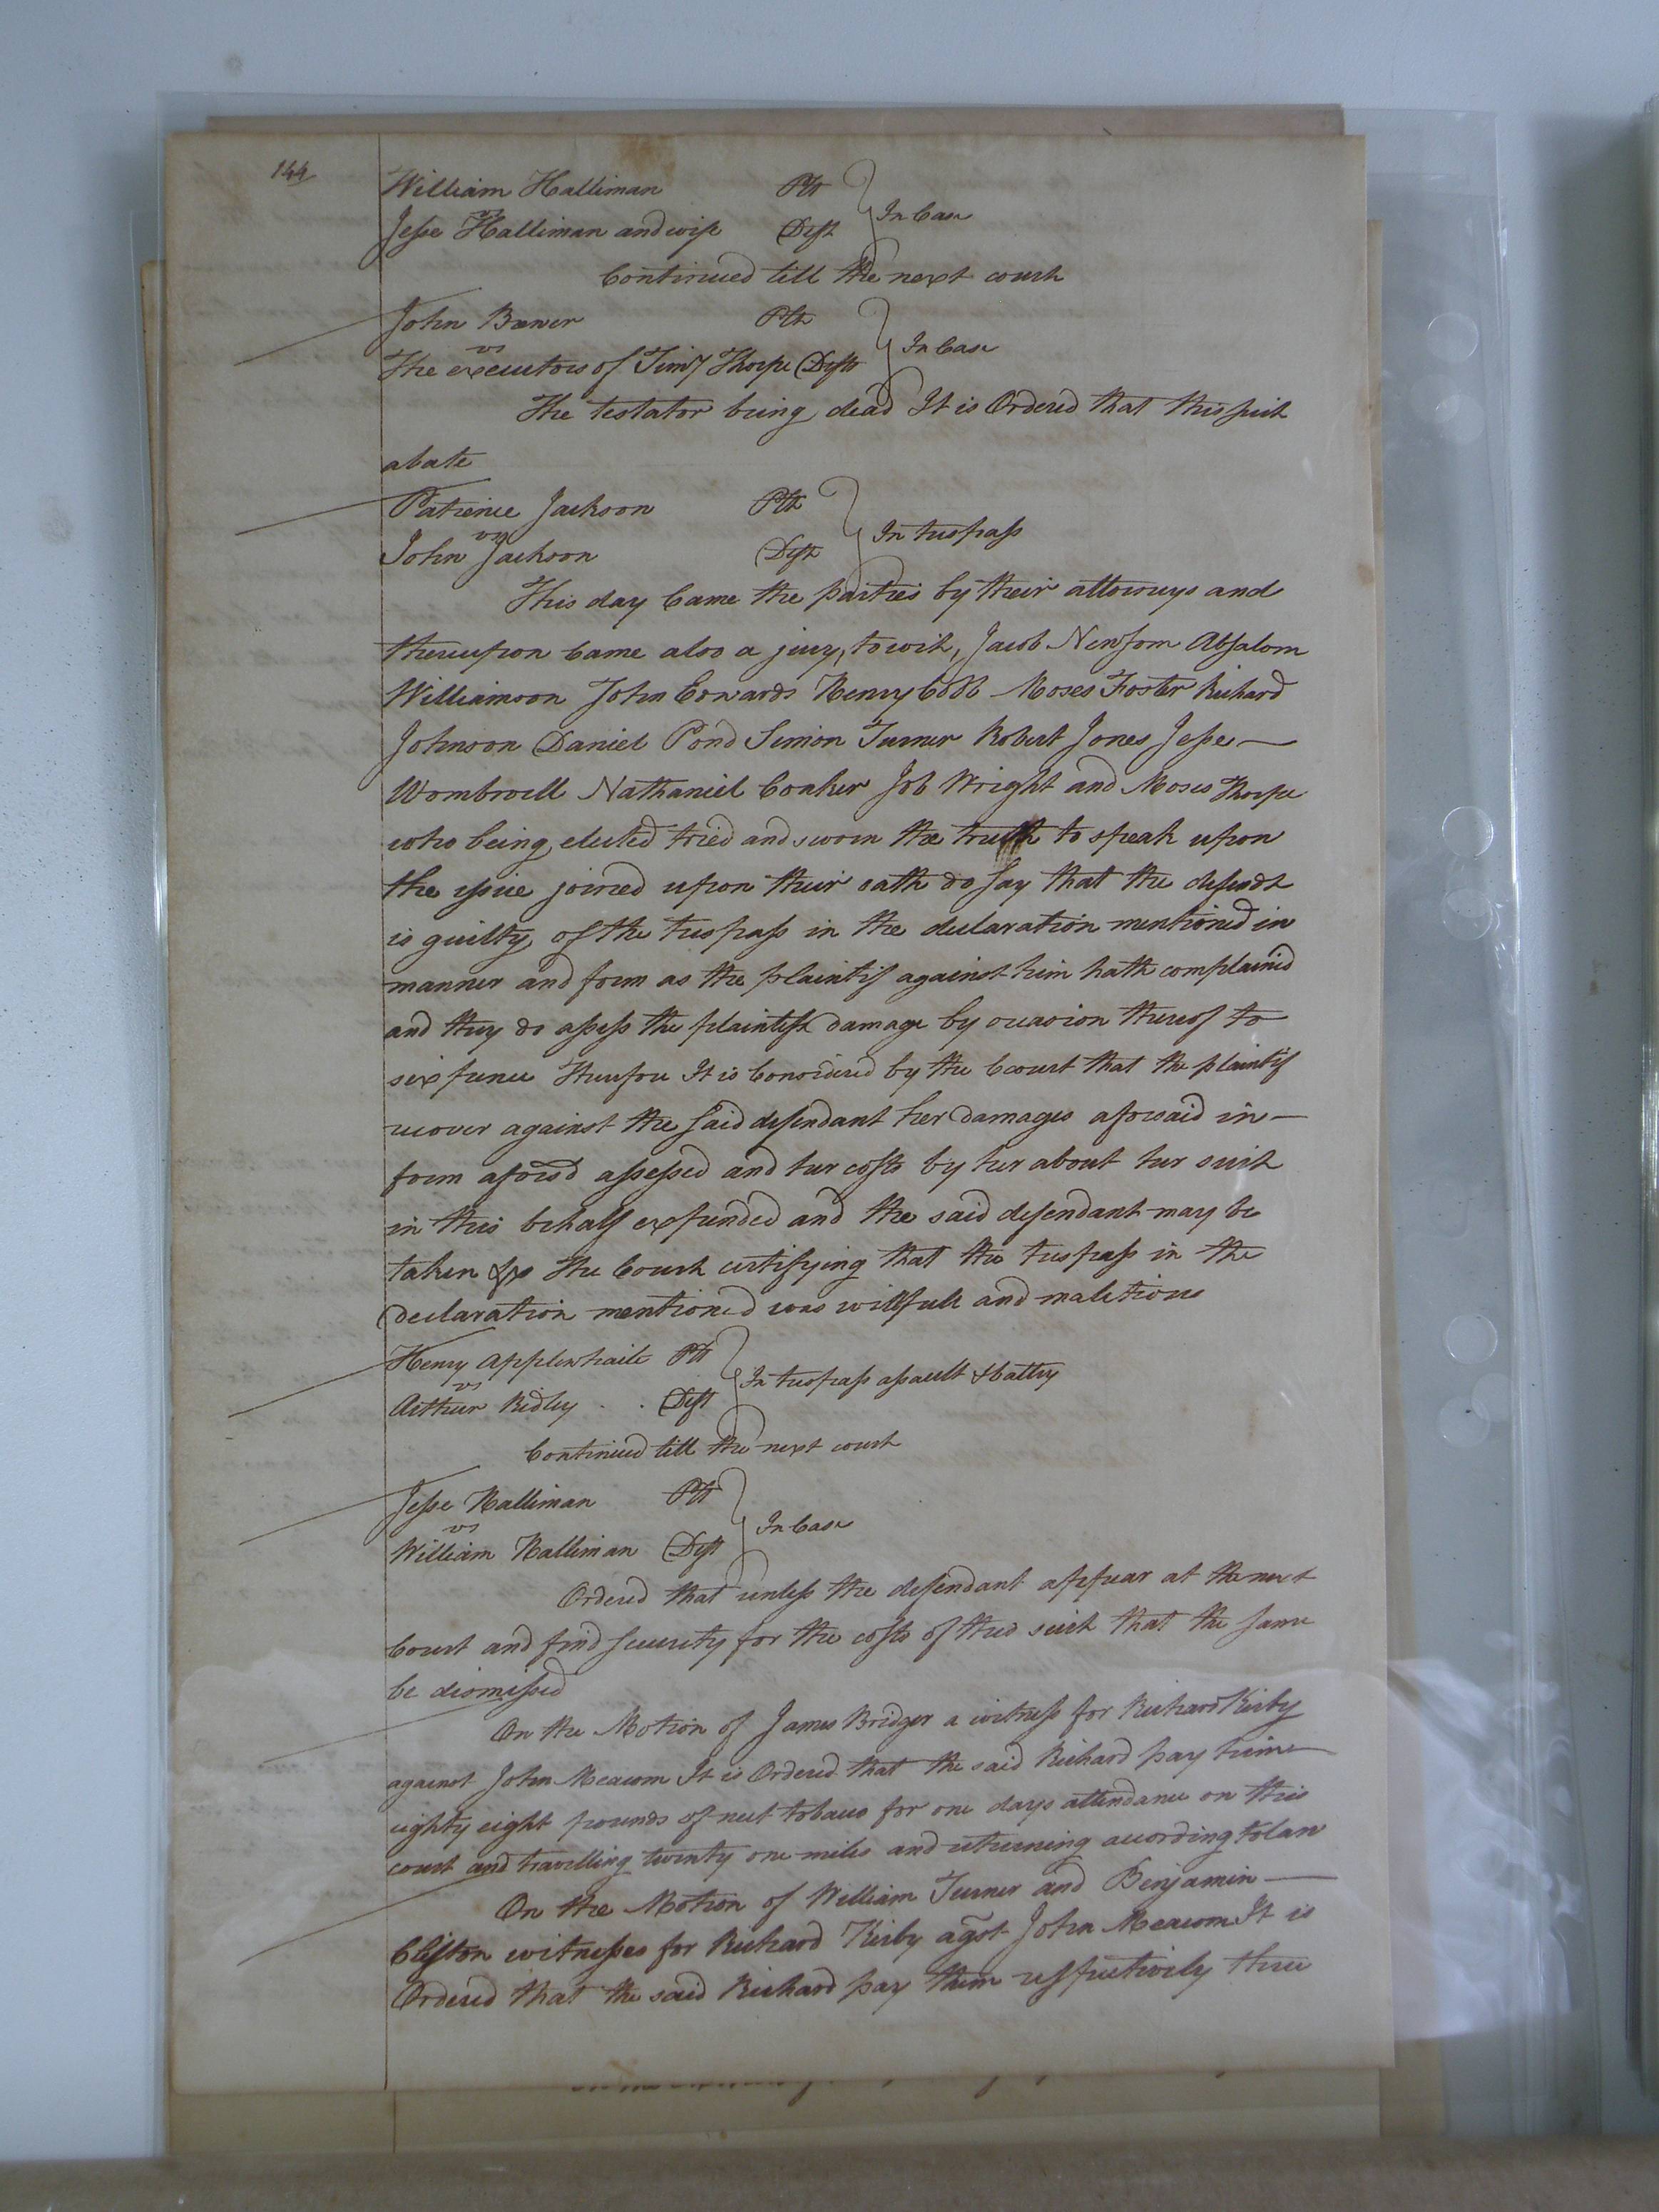 144
William Halliman Plt
vs
Jesse Halliman and wife Deft
In Case
Continued till the next court
John Bowser Plt
vs
The executors of Timy Thorpe Defts
In Case
The testator being dead It is Ordered that this suit
abate
Patience Jackson Plt
vs
John Jackson Deft
In trespass
This day Came the parties by their attorneys and
thereupon Came also a jury, to wit, Jacob Newsom Absalom
Williamson John Edwards Henry Cobb Moses Foster Richard
Johnson Daniel Pond Simon Turner Robert Jones Jesse
Wombwell Nathaniel Conker Job Wright and Moses Thorpe
who being elected tried and sworn the truth to speak upon
the issue joined upon their oath do say that the defendt
is guilty of the trespass in the declaration mentioned in
manner and form as the plaintif against him hath complained
and they do assess the plaintiffs damage by occasion thereof to
six pence Therefore It is Considered by the Ccourt that the plaintif
recover against the said defendant her damages aforesaid in
form aforesd assessed and her costs by her about her suit
in this behalf expended and the said defendant may be
taken &c The Court certifying that the trespass in the
declaration mentioned was willfull and malitious
Henry Applewhaite Plt
vs
Arthur Ridley . . Deft
In trespass assault & battry
Continued till the next court
Jesse Halliman Plt
vs
William Halliman Deft
In Case
Ordered that unless the defendant appear at the next
Court and find security for the costs of this suit that the same
be dismissed
On the Motion of James Bridger a witness for Richard Kirby
against John Meacom It is Ordered that the said Richard pay him
eighty eight pounds of nett tobacco for one days attendance on this
court and travelling twenty one miles and returning according to law
On the Motion of William Turner and Benjamin
Clifton witnesses for Richard Kirby agst John Meacom It is
Ordered that the said Richard pay them respectively three